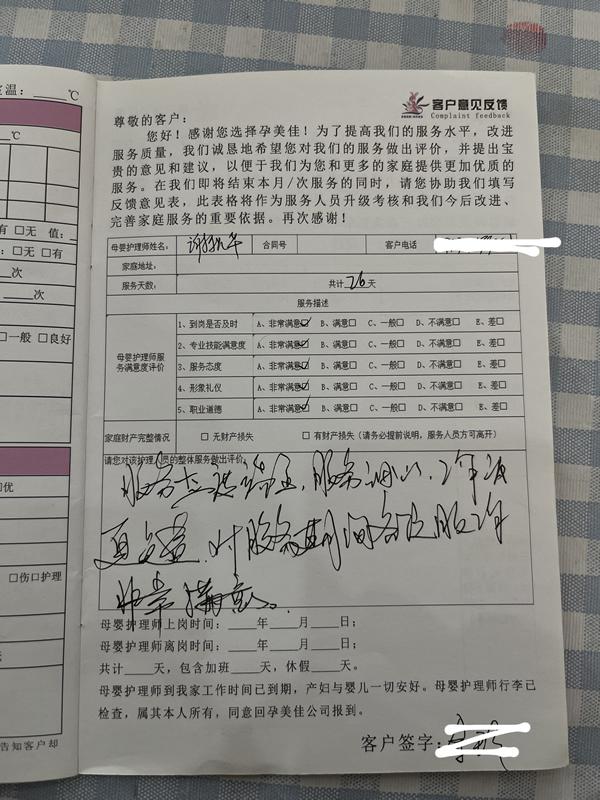 室温：____℃
℃
□无 值：
：□无 □有
次
____次
□一般 □良好
□优
□伤口护理
告知客户却
客户意见反馈
Complaint feedback
尊敬的客户：
您好！感谢您选择孕美佳！为了提高我们的服务水平，改进
服务质量，我们诚恳地希望您对我们的服务做出评价，并提出宝
贵的意见和建议，以便于我们为您和更多的家庭提供更加优质的
服务。在我们即将结束本月/次服务的同时，请您协助我们填写
反馈意见表，此表格将作为服务人员升级考核和我们今后改进、
完善家庭服务的重要依据。再次感谢！
母婴护理师姓名： 合同号 客户电话
家庭地址：
服务天数： 共计26天
服务描述
母婴护理师服务满意度评价
1、到岗是否及时 A、非常满意☑ B、满意□ C、一般□ D、不满意□ E、差□
2、专业技能满意度 A、非常满意☑ B、满意□ C、一般□ D、不满意□ E、差□
3、服务态度 A、非常满意☑ B、满意□ C、一般□ D、不满意□ E、差□
4、形象礼仪 A、非常满意☑ B、满意□ C、一般□ D、不满意□ E、差□
5、职业道德 A、非常满意☑ B、满意□ C、一般□ D、不满意□ E、差□
家庭财产完整情况 □ 无财产损失 □ 有财产损失（请务必提前说明，服务人员方可离开）
请您对该护理人员的整体服务做出评价
服务 服务
认真负责，对服务期间各项服务
非常满意。
母婴护理师上岗时间：____年____月____日；
母婴护理师离岗时间：____年____月____日；
共计____天，包含加班____天，休假____天。
母婴护理师到我家工作时间已到期，产妇与婴儿一切安好。母婴护理师行李已
检查，属其本人所有，同意回孕美佳公司报到。
客户签字：